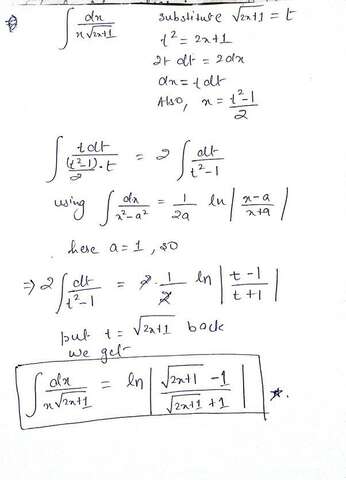 ∫ dx / x√2x+1   substitute √2x+1 = t
t² = 2x+1
2t dt = 2dx
dx = t dt
Also, x = t²-1 / 2
∫ t dt / (t²-1)/2 · t = 2 ∫ dt / t²-1
using ∫ dx / x²-a² = 1/2a ln | x-a / x+a |
here a=1, so
⇒ 2 ∫ dt / t²-1 = 2 · 1/2 ln | t-1 / t+1 |
put t = √2x+1 back
we get
∫ dx / x√2x+1 = ln | √2x+1 -1 / √2x+1 +1 |